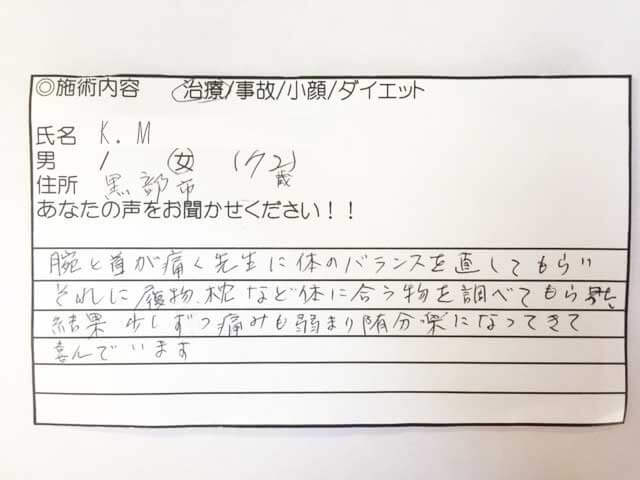 ◎施術内容 治療/事故/小顔/ダイエット
氏名 K.M
男 / 女 (72歳)
住所 黒部市
あなたの声をお聞かせください！！
腕と首が痛く先生に体のバランスを直してもらい
それに履物、枕など体に合う物を調べてもらった
結果 少しずつ痛みも弱まり随分楽になってきて
喜んでいます